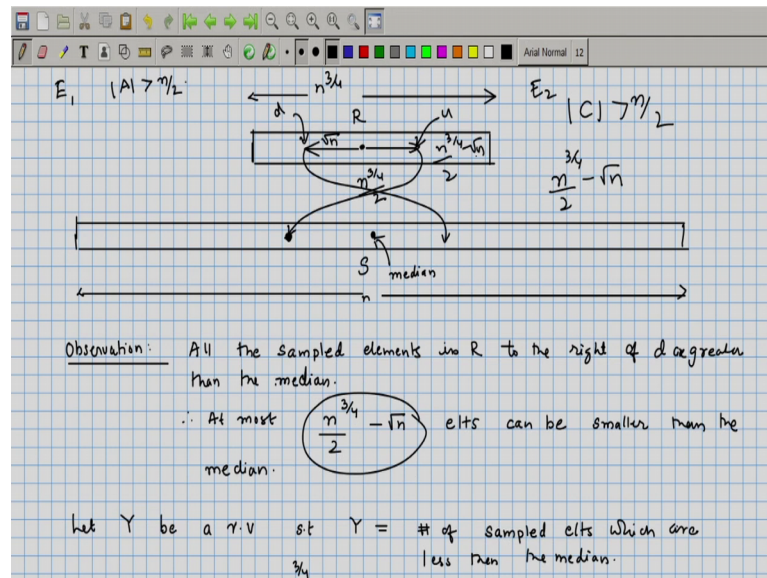 Arial Normal 12
E₁ |A| > n/2
n^{3/4}
E₂ |C| > n/2
d R u
√n
n^{3/4} - √n / 2
n^{3/4} / 2
n^{3/4} / 2 - √n
S median
n
Observation: All the sampled elements in R to the right of d are greater
than the median.
∴ At most n^{3/4} / 2 - √n elts can be smaller than the
median.
Let Y be a r.v s.t Y = # of sampled elts which are
less then the median.
3/4